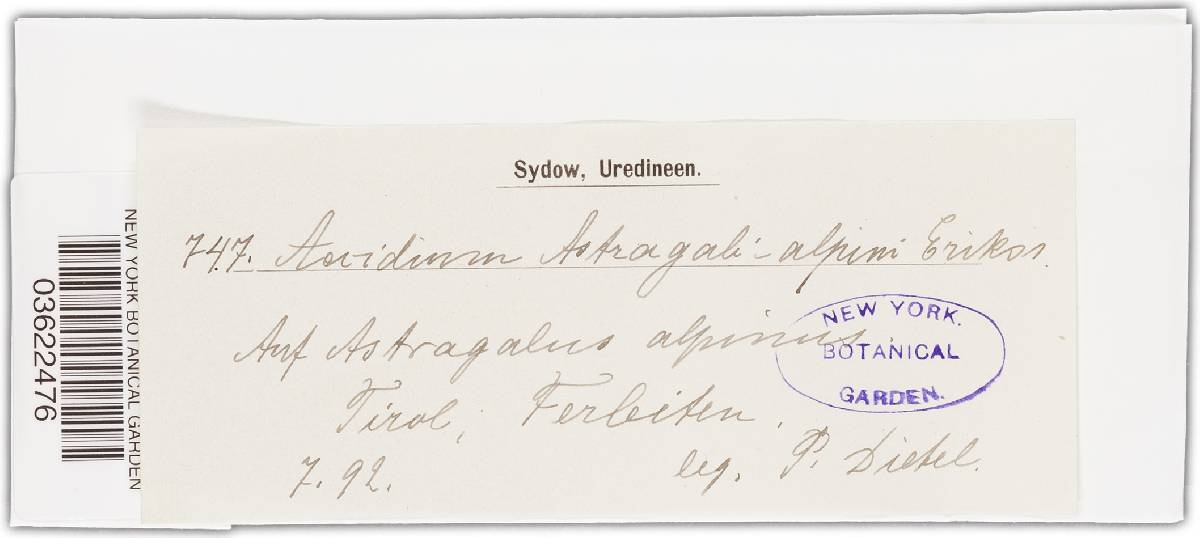 Sydow, Uredineen.
747. Aecidium Astragali-alpini Erikss.
Auf Astragalus alpinus.
Tirol, Ferleiten,
7.92. leg. P. Dietel.
NEW YORK.
BOTANICAL
GARDEN.
NEW YORK BOTANICAL GARDEN
03622476